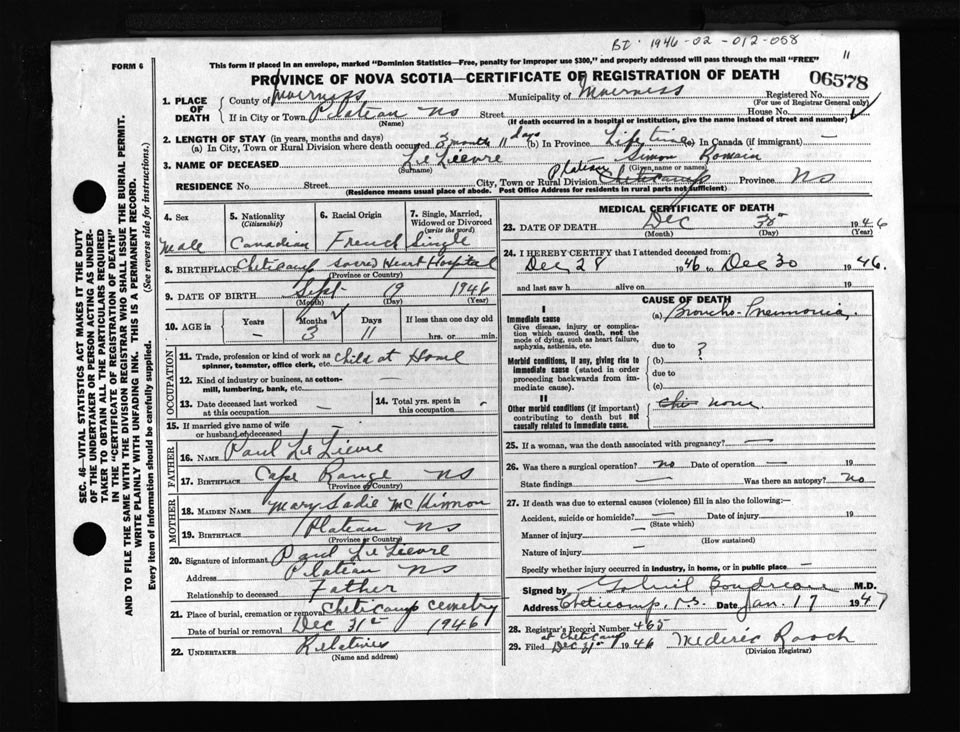 BI· 1946-02-012-058
11
FORM 6
This form if placed in an envelope, marked "Dominion Statistics—Free, penalty for improper use $300," and properly addressed will pass through the mail "FREE"
PROVINCE OF NOVA SCOTIA—CERTIFICATE OF REGISTRATION OF DEATH
06578
1. PLACE OF DEATH
County of Inverness Municipality of Inverness Registered No.
(For use of Registrar General only)
If in City or Town Plateau NS Street House No.
(Name) (If death occurred in a hospital or institution, give the name instead of street and number)
2. LENGTH OF STAY (in years, months and days)
(a) In City, Town or Rural Division where death occurred 3 month 11 days (b) In Province Life time (c) In Canada (if immigrant) —
3. NAME OF DECEASED Le Lievre Simon Romain
(Surname) (Given name or names)
RESIDENCE No. Street City, Town or Rural Division Plateau Cheticamp Province NS
(Residence means usual place of abode. Post Office Address for residents in rural parts not sufficient)
4. Sex
Male
5. Nationality
(Citizenship)
Canadian
6. Racial Origin
French
7. Single, Married, Widowed or Divorced
(write the word)
Single
8. BIRTHPLACE Cheticamp Sacred Heart Hospital
(Province or Country)
9. DATE OF BIRTH Sept 19 1946
(Month) (Day) (Year)
10. AGE in
Years Months Days If less than one day old
— 3 11 hrs. or min.
OCCUPATION
11. Trade, profession or kind of work as spinner, teamster, office clerk, etc. Child at Home
12. Kind of industry or business, as cotton-mill, lumbering, bank, etc. —
13. Date deceased last worked at this occupation —
14. Total yrs. spent in this occupation -
15. If married give name of wife or husband of deceased —
FATHER
16. NAME Paul Le Lievre
17. BIRTHPLACE Cape Range NS
(Province or Country)
MOTHER
18. MAIDEN NAME Mary Sadie McKinnon
19. BIRTHPLACE Plateau NS
(Province or Country)
20. Signature of informant Paul Le Lievre
Address Plateau NS
Relationship to deceased Father
21. Place of burial, cremation or removal Cheticamp Cemetery
Date of burial or removal Dec 31st 1946
22. UNDERTAKER Relatives
(Name and address)
MEDICAL CERTIFICATE OF DEATH
23. DATE OF DEATH Dec 30 1946
(Month) (Day) (Year)
24. I HEREBY CERTIFY that I attended deceased from:
Dec 28 1946 to Dec 30 1946.
and last saw h alive on 19
CAUSE OF DEATH
I
Immediate cause
Give disease, injury or complication which caused death, not the mode of dying, such as heart failure, asphyxia, asthenia, etc.
(a) Broncho-Pneumonia.
due to
Morbid conditions, if any, giving rise to immediate cause (stated in order proceeding backwards from immediate cause).
(b) ?
due to
(c)
II
Other morbid conditions (if important) contributing to death but not causally related to immediate cause.
none
25. If a woman, was the death associated with pregnancy? —
26. Was there a surgical operation? no Date of operation — 19
State findings — Was there an autopsy? no
27. If death was due to external causes (violence) fill in also the following:—
Accident, suicide or homicide? — Date of injury 19
(State which)
Manner of injury —
(How sustained)
Nature of injury —
Specify whether injury occurred in industry, in home, or in public place —
Signed by Gabriel Boudreau M.D.
Address Cheticamp, N.S. Date Jan. 17 1947
28. Registrar's Record Number 465
29. Filed at Cheticamp Dec 31st 1946 Mederic Roach
(Division Registrar)
SEC. 46—VITAL STATISTICS ACT MAKES IT THE DUTY
OF THE UNDERTAKER OR PERSON ACTING AS UNDER-
TAKER TO OBTAIN ALL THE PARTICULARS REQUIRED
IN THE "CERTIFICATE OF REGISTRATION OF DEATH"
AND TO FILE THE SAME WITH THE DIVISION REGISTRAR WHO SHALL ISSUE THE BURIAL PERMIT.
WRITE PLAINLY WITH UNFADING INK. THIS IS A PERMANENT RECORD.
Every item of information should be carefully supplied. (See reverse side for instructions.)